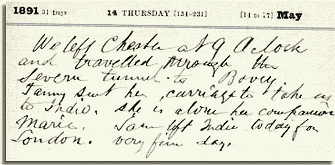 1891 31-Days 14 THURSDAY [134-231] [14 to 17] May
We left Chester at 9 Oclock
and travelled through the
Severn tunnel to Bovey.
Fanny sent her carriage to take us
to Indio. She is alone her companion
Maria. Sam left Indio today for
London. very fine day.